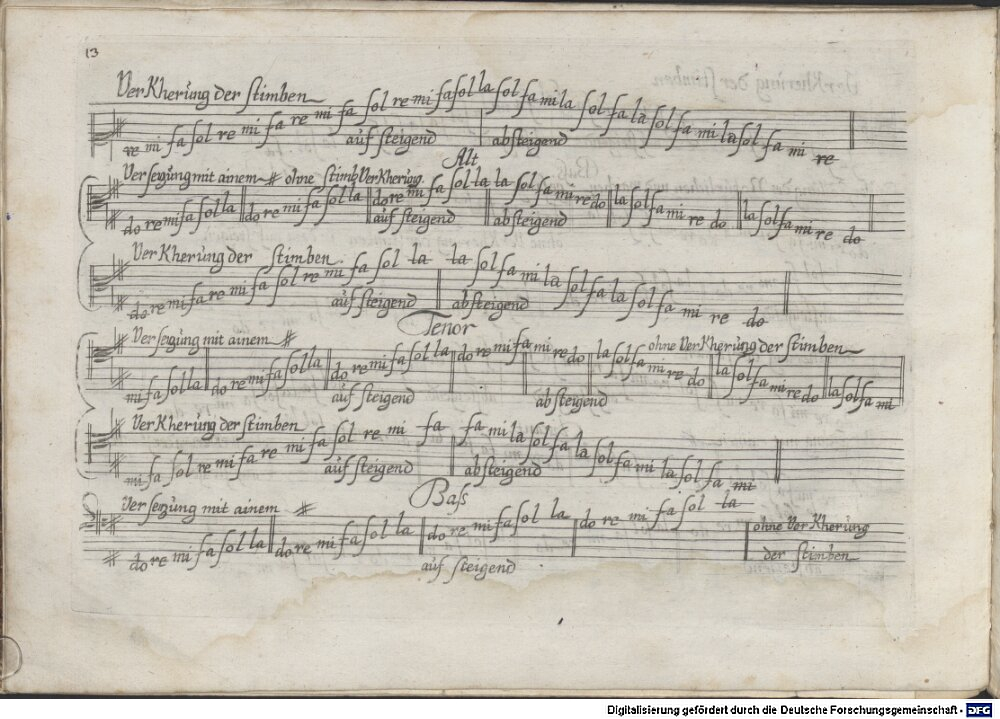 13
Ver Kherŭng der stimben
re mi fa sol re mi fa re mi fa sol re mi fa sol la sol fa mi la sol fa la sol fa mi la sol fa mi re
auf steigend absteigend
Alt
Versezŭng mit ainem # ohne stimb Ver Kherŭng
do re mi fa sol la do re mi fa sol la do re mi fa sol la la sol fa mi re do la sol fa mi re do la sol fa mi re do
auf steigend absteigend
Ver Kherŭng der stimben
do re mi fa re mi fa sol re mi fa sol la la sol fa mi la sol fa la sol fa mi re do
auf steigend absteigend
Tenor
Versezŭng mit ainem # ohne Ver Kherŭng der stimben
mi fa sol la do re mi fa sol la do re mi fa sol la do re mi fa mi re do la sol fa mi re do la sol fa mi re do la sol fa mi
auf steigend absteigend
Ver Kherŭng der stimben
mi fa sol re mi fa re mi fa sol re mi fa fa mi la sol fa la sol fa mi la sol fa mi
auf steigend absteigend
Bass
Versezŭng mit ainem #
do re mi fa sol la do re mi fa sol la do re mi fa sol la do re mi fa sol la ohne Ver Kherŭng
der stimben
auf steigend
Digitalisierung gefördert durch die Deutsche Forschungsgemeinschaft - DFG